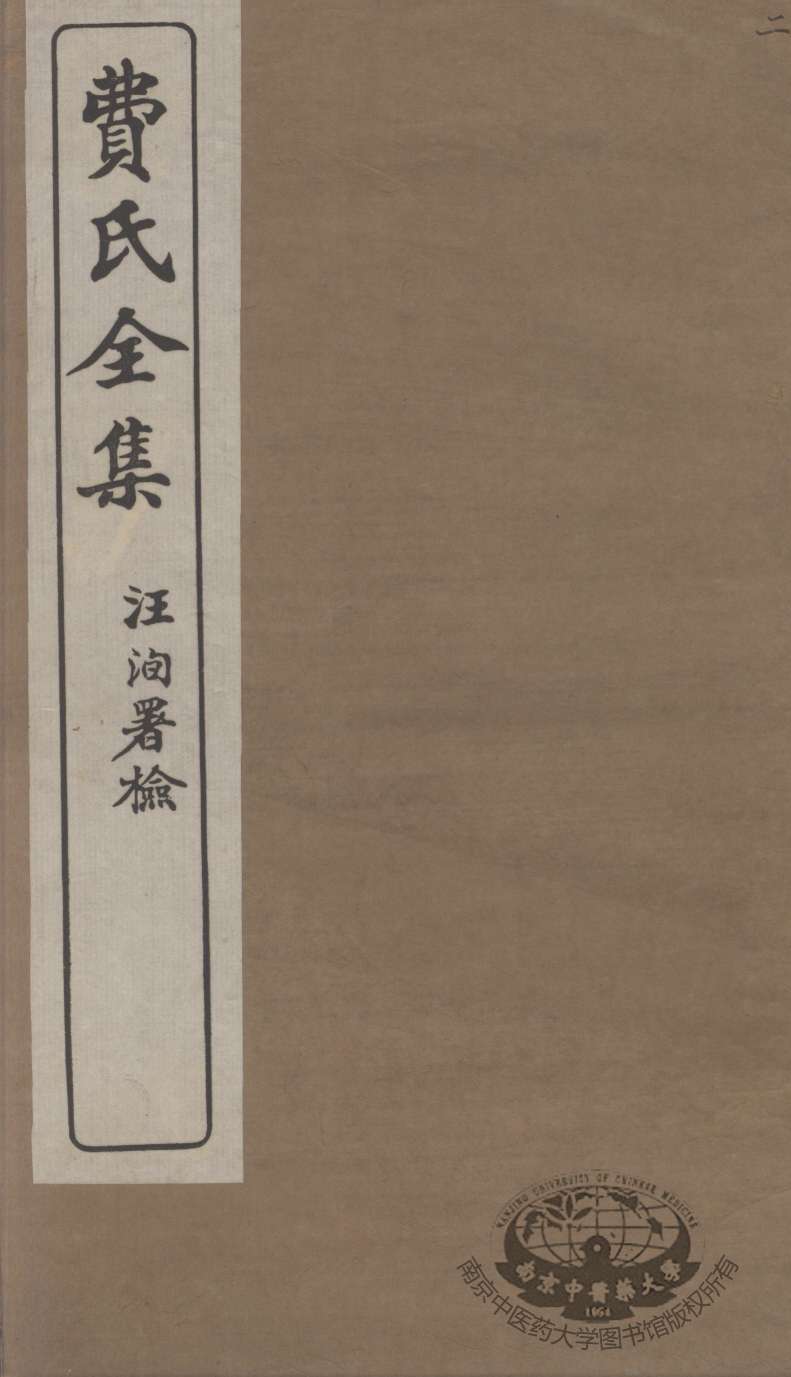 二
費氏全集
汪洵署檢
NANJING UNIVERSITY OF CHINESE MEDICINE
南京中醫藥大學
1954
南京中医药大学图书馆版权所有